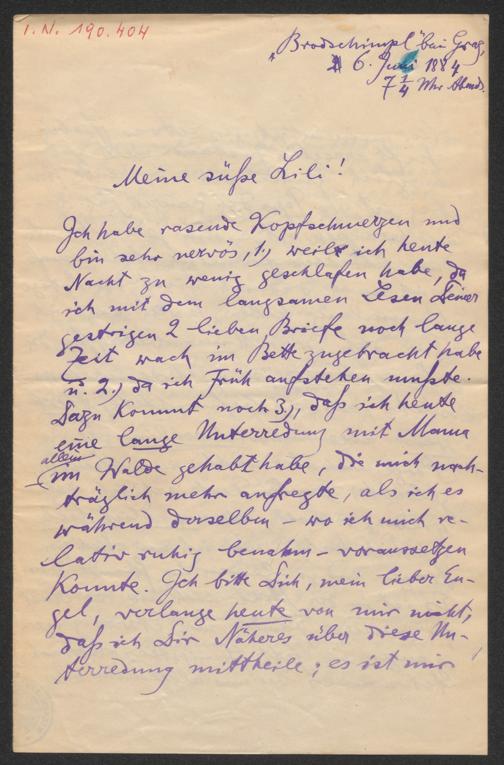 I.N. 190.404
"Brodschimpl" bei Graz,
6. Juli 1884
7 1/4 Uhr Abends.
Meine süße Lili!
Ich habe rasende Kopfschmerzen und
bin sehr nervös, 1.) weil ich heute
Nacht zu wenig geschlafen habe, da
ich mit dem langsamen Lesen Deiner
gestrigen 2 lieben Briefe noch lange
Zeit wach im Bette zugebracht habe
u. 2.) da ich Früh aufstehen mußte.
Dazu kommt noch 3.), daß ich heute
eine lange Unterredung mit Mama
allein
im Walde gehabt habe, die mich nach-
träglich mehr aufregte, als ich es
während derselben – wo ich mich re-
lativ ruhig benahm – voraussetzen
konnte. Ich bitte Dich, mein lieber En-
gel, verlange heute von mir nicht,
daß ich Dir Näheres über diese Un-
terredung mittheile; es ist mir